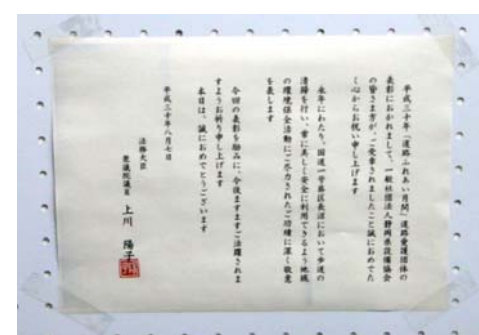 平成三十年「道路ふれあい月間」道路愛護団体の
表彰におかれまして、一般社団法人静岡県設備協会
の皆さま方が、ご受章されましたこと誠におめでた
く心からお祝い申し上げます
永年にわたり、国道一号葵区長沼において歩道の
清掃を行い、常に美しく安全に利用できるよう地域
の環境保全活動にご尽力されたご功績に深く敬意
を表します
今回の表彰を励みに、今後ますますご活躍されま
すようお祈り申し上げます
本日は、誠におめでとうございます
平成三十年八月七日
法務大臣
衆議院議員 上川 陽子